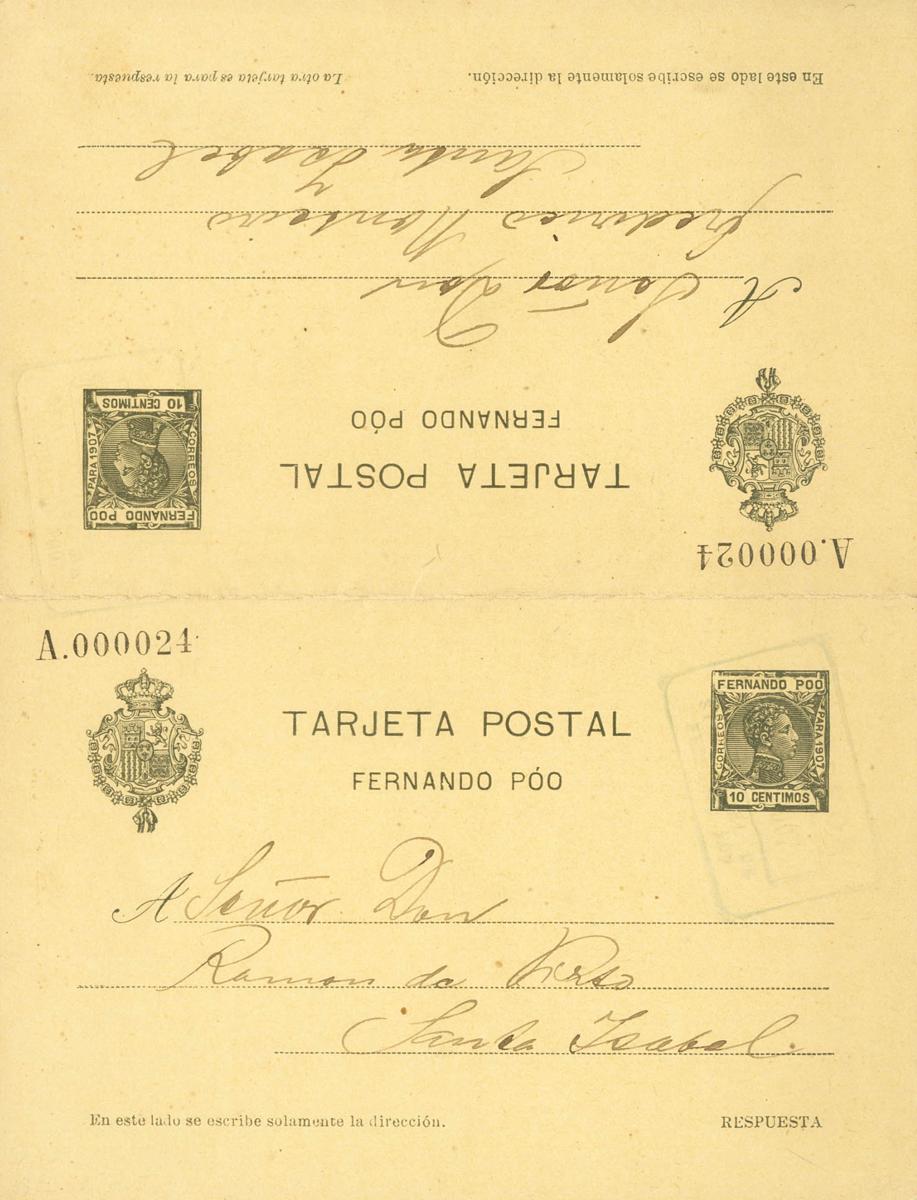 La otra tarjeta es para la respuesta.
En este lado se escribe solamente la dirección.
Santa Isabel
Frederico Monteiro
A Señor Don
10 CENTIMOS
CORREOS
PARA 1907
FERNANDO POO
FERNANDO PÓO
TARJETA POSTAL
A.000024
A.000024
TARJETA POSTAL
FERNANDO PÓO
FERNANDO POO
CORREOS
PARA 1907
10 CENTIMOS
A Señor Don
Ramon de
Santa Isabel.
En este lado se escribe solamente la dirección.
RESPUESTA